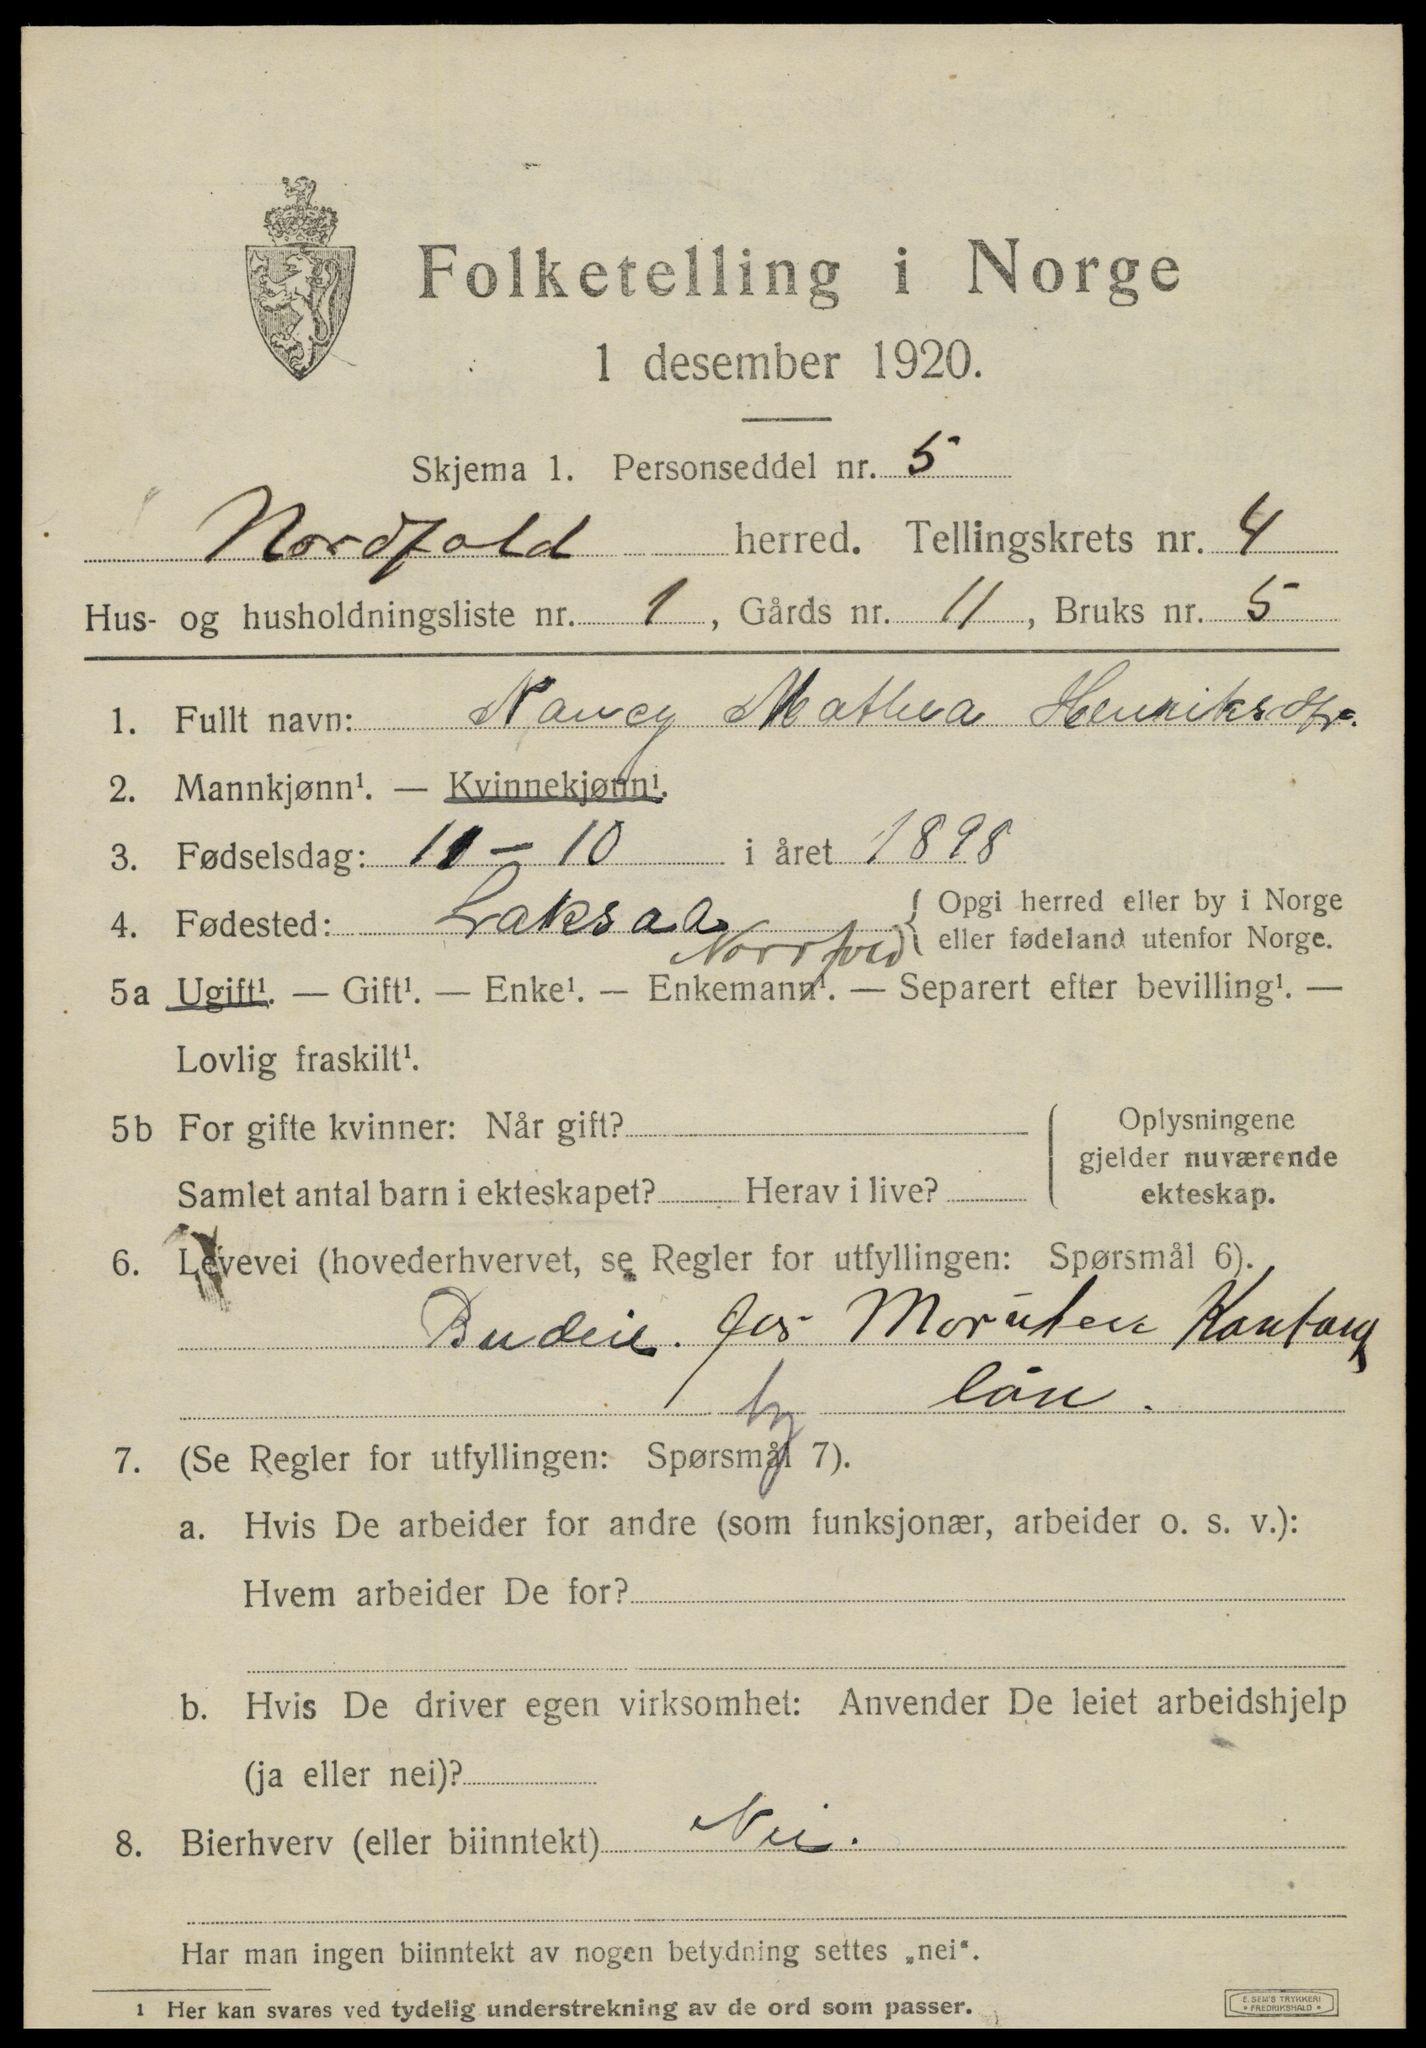 Folketelling i Norge
1 desember 1920.
Skjema 1. Personseddel nr. 5
Nordfold herred. Tellingskrets nr. 4
Hus- og husholdningsliste nr. 1, Gårds nr. 11, Bruks nr. 5
1. Fullt navn: Nancy Mathea Henriksdtr.
2. Mannkjønn¹. — Kvinnekjønn¹.
3. Fødselsdag: 11 – 10 i året 1898
4. Fødested: Laksaa { Opgi herred eller by i Norge
Nordfold eller fødeland utenfor Norge.
5a Ugift¹. — Gift¹. — Enke¹. — Enkemann¹. — Separert efter bevilling¹. —
Lovlig fraskilt¹.
5b For gifte kvinner: Når gift? Oplysningene
gjelder nuværende
Samlet antal barn i ekteskapet? Herav i live? ekteskap.
6. Levevei (hovederhvervet, se Regler for utfyllingen: Spørsmål 6).
Budeie. for Kontant
lön.
7. (Se Regler for utfyllingen: Spørsmål 7).
a. Hvis De arbeider for andre (som funksjonær, arbeider o. s. v.):
Hvem arbeider De for?
b. Hvis De driver egen virksomhet: Anvender De leiet arbeidshjelp
(ja eller nei)?
8. Bierhverv (eller biinntekt) Nei.
Har man ingen biinntekt av nogen betydning settes „nei“.
1 Her kan svares ved tydelig understrekning av de ord som passer.
E. SEM'S TRYKKERI
• FREDRIKSHALD •